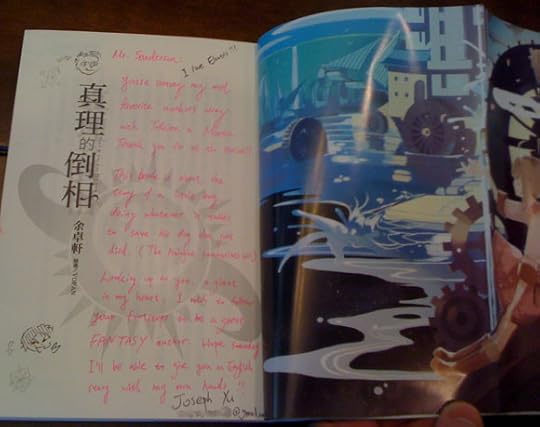 Mr. Sanderson,
I love Elantris!!!
You're among my most
favorite authors along
with Tolkien &
Thank you for all the
This book is about the
story of a little boy
doing whatever it takes
to save his dog
died. (The
Looking up to you, a giant
in my heart. I wish to follow
your footsteps & be a great
FANTASY author. Hope someday
I'll be able to give you an English
copy with my own hands!!
Joseph Yu
真理
的
倒相
余卓軒